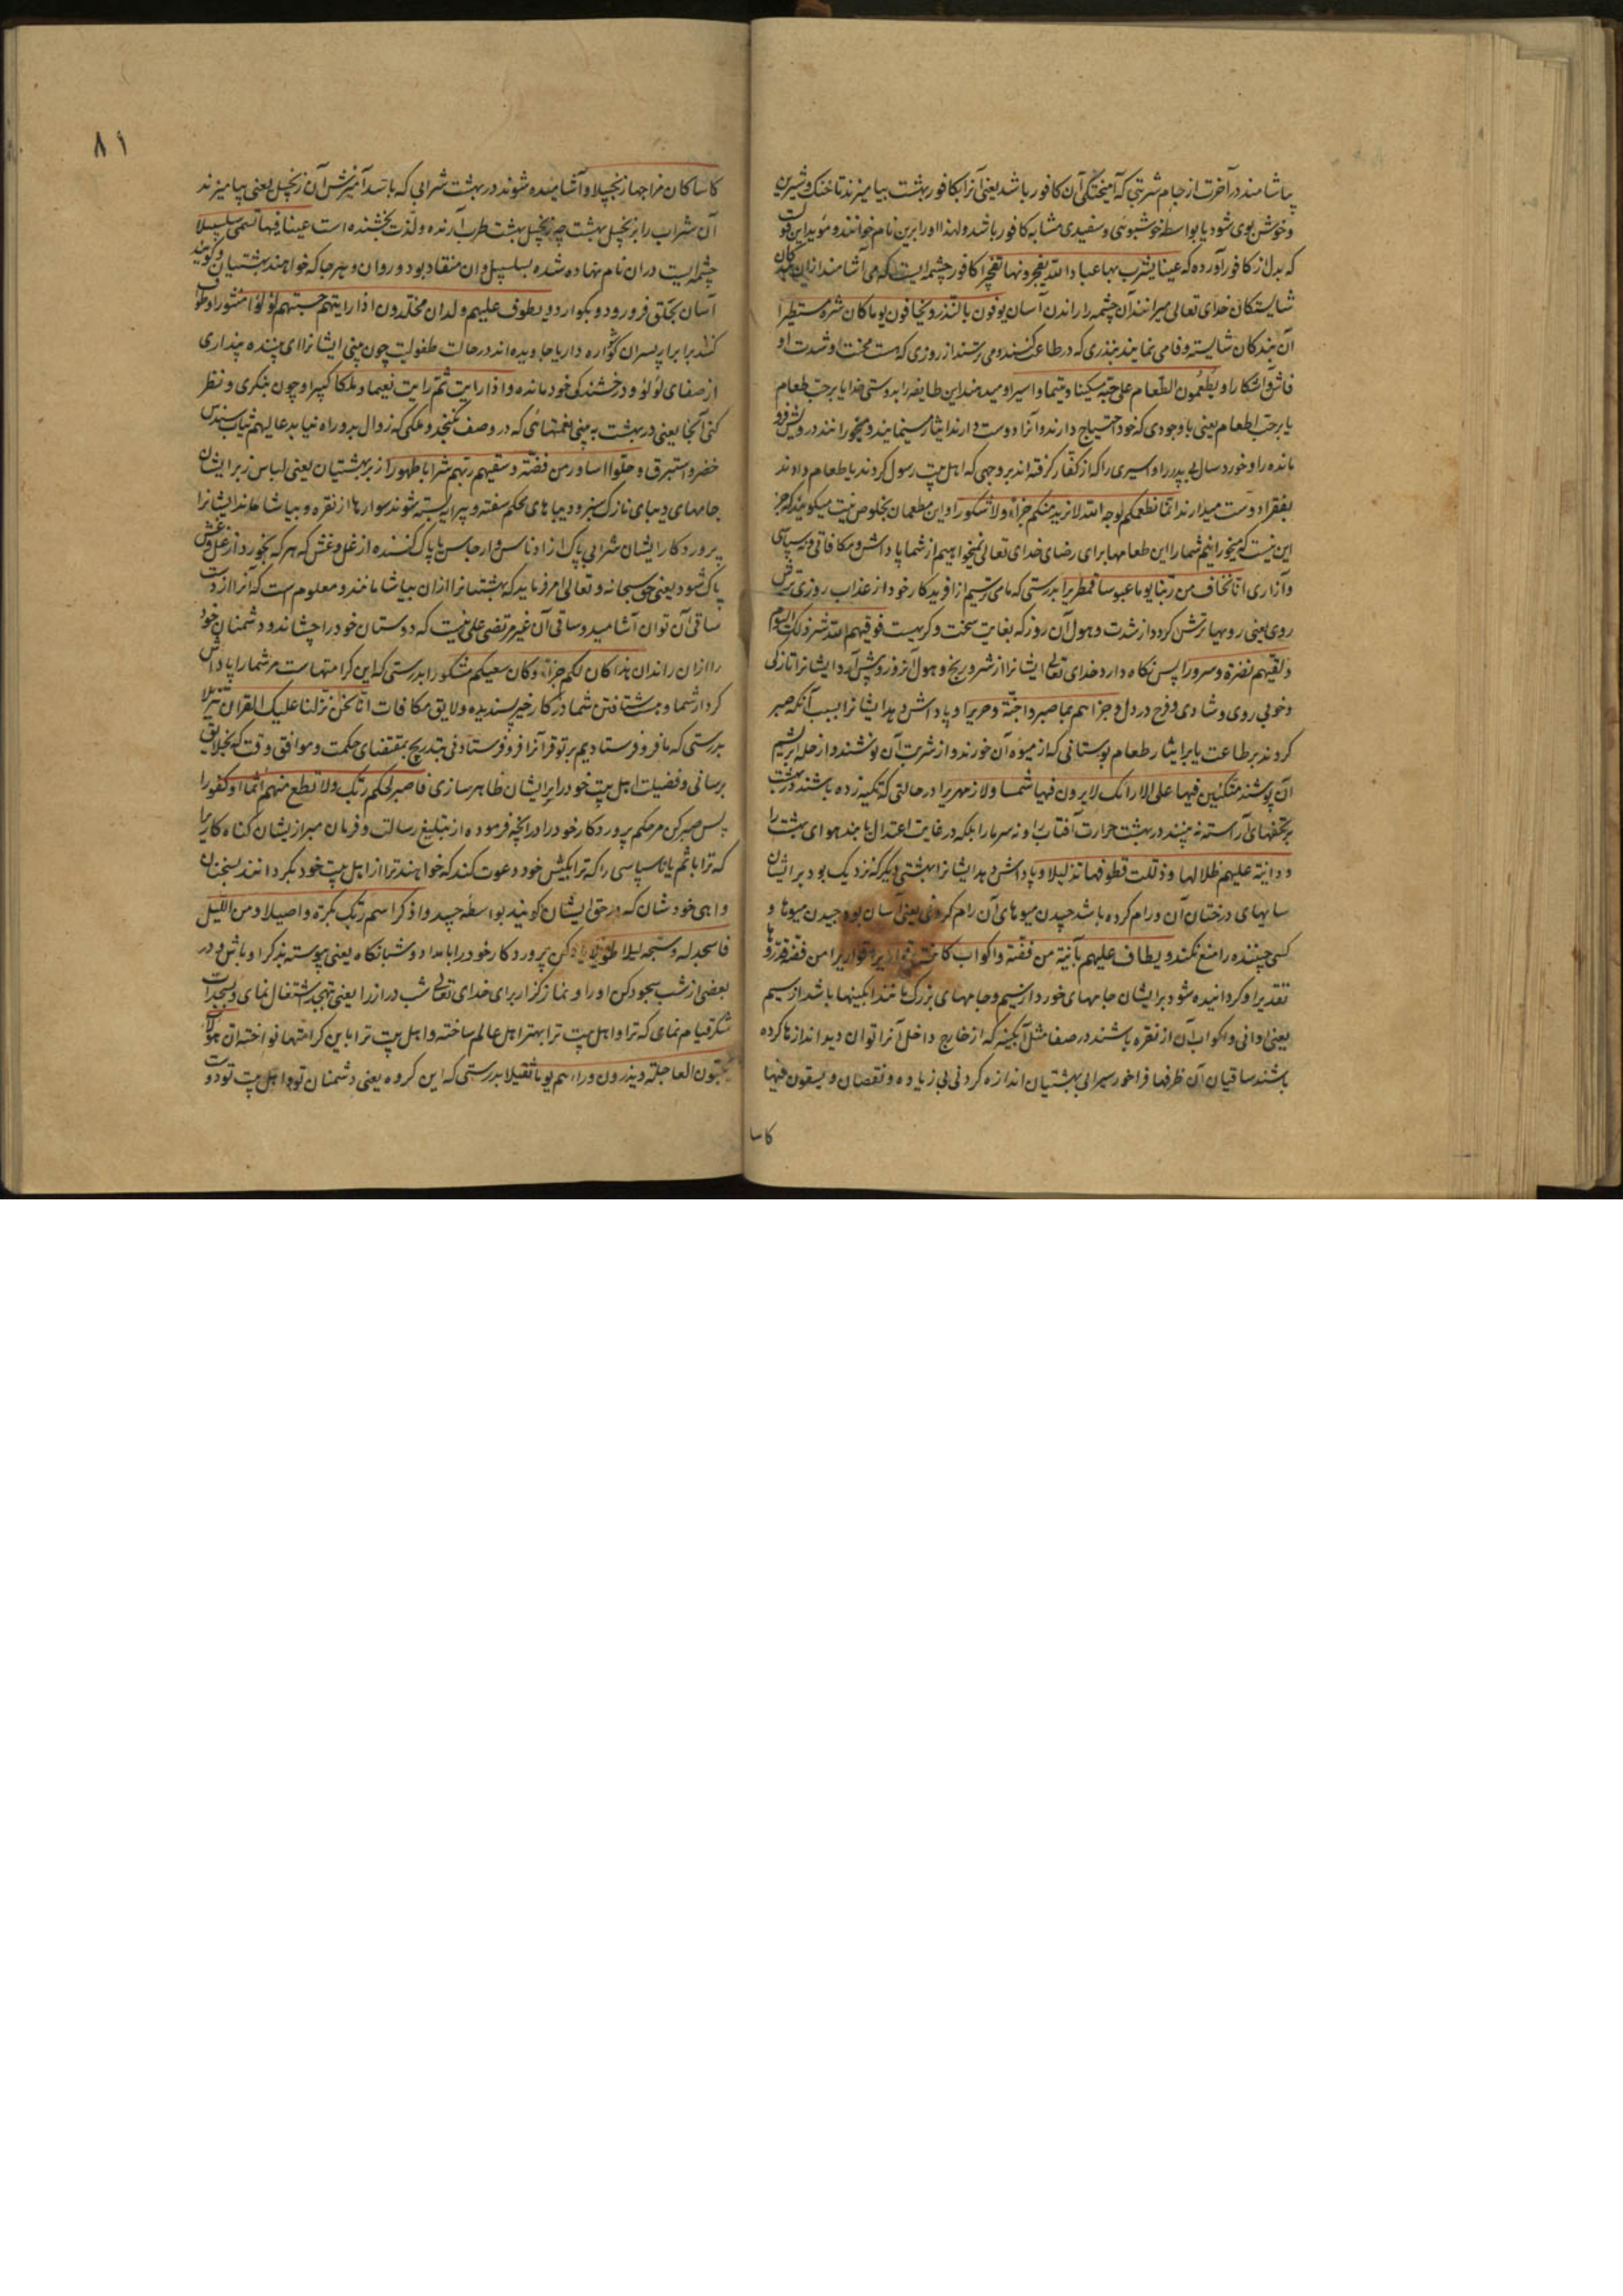 بیاشامند در آخرت از جام شربتی که آمیختگی آن کافور باشد یعنی آنرا بکافور بهشت بیامیزند تا خنک و شیرین
و خوش بوی شود یا بواسطه خوشبوئی و سفیدی مشابه کافور باشد و لهذا او را برین نام خوانند و مؤید این قول
که بدل از کافور آورده که عینا یشرب بها عباد الله یفجرونها تفجیرا کافور چشمه ایست که می آشامند ازان بندکان
شایستکان خدای تعالی میرانند آن چشمه را راندن آسان یوفون بالنذر و یخافون یوما کان شره مستطیرا
آن بندکان شایسته وفا می نمایند بنذری که در طاعت کنند و می ترسند از روزی که هست محنت و شدت او
فاش و آشکارا و یطعمون الطعام علی حبه مسکینا و یتیما و اسیرا و میدهند این طایفه را بدوستی خدا یا بر حب طعام
یا بر حب اطعام یعنی با وجودی که خود احتیاج دارند و آنرا دوست دارند ایثار مینمایند و میخورانند درویش فرو
مانده را و خورد سال بی پدر را و اسیری را که از کفار گرفته اند بر وجهی که اهل بیت رسول کردند یا طعام دادند
بفقرا دوست میدارند انما نطعمکم لوجه الله لا نرید منکم جزاء و لا شکورا و این مطعمان بخلوص نیت میکویند که جز
این نیست که میخورانیم شما را این طعامها برای رضای خدای تعالی نمیخواهیم از شما پاداش و مکافاتی و نه سپاسی
و آزاری انا نخاف من ربنا یوما عبوسا قمطریرا بدرستی که ما می ترسیم از آفریدکار خود از عذاب روزی ترش
روی یعنی رویها ترش کردد از شدت و هول آن روز که بغایت سخت و کریه است فوقیهم الله شر ذلک الیوم
و لقیهم نضرة و سرورا پس نکاه دارد خدای تعالی ایشانرا از شر و رنج و هول آنروز و پیش آرد ایشانرا تازکی
و خوبی روی و شادی و فرح در دل و جزاهم بما صبروا جنة و حریرا و پاداش دهد ایشانرا بسبب آنکه صبر
کردند بر طاعت یا بر ایثار طعام بوستانی که از میوه آن خورند و از شربت آن نوشند و از حله ابریشم
آن پوشند متکئین فیها علی الارائک لا یرون فیها شمسا و لا زمهریرا در حالتی که تکیه زده باشند در بهشت
بر تختهای آراسته نه بینند در بهشت حرارت آفتاب را و نه سرما را بلکه در غایت اعتدال یابند هوای بهشت را
و دانیة علیهم ظلالها و ذللت قطوفها تذلیلا و پاداش دهد ایشانرا بهشتی دیگر که نزدیک بود بر ایشان
سایهای درختان آن و رام کرده باشد چیدن میوهای آن رام کردنی یعنی آسان بود چیدن میوها و
کسی چیننده را منع نکند و یطاف علیهم بآنیة من فضة و اکواب کانت قواریرا قواریرا من فضة قدروها
تقدیرا و کردانیده شود بر ایشان جامهای خورد از سیم و جامهای بزرک مانند آبکینها باشد از سیم
یعنی اوانی و اکواب آن از نقره باشند در صفا مثل آبکینه که از خارج داخل آنرا توان دید اندازها کرده
باشند ساقیان آن ظرفها فراخور سیرابی بهشتیان اندازه کردنی بی زیاده و نقصان و یسقون فیها
کاسا
۸۱
کاسا کان مزاجها زنجبیلا و آشامیده شوند در بهشت شرابی که باشد آمیزش آن زنجبیل یعنی بیامیزند
آن شراب را بزنجبیل بهشت چه زنجبیل بهشت طرب آرنده و لذت بخشنده است عینا فیها تسمی سلسبیلا
چشمه ایست دران نام نهاده شده بسلسبیل و آن منقاد بود و روان و هر جا که خواهند بهشتیان و کویند
آسان بحلق فرو رود و بکوارد و یطوف علیهم ولدان مخلدون اذا رایتهم حسبتهم لؤلؤا منثورا و طوف
کنند برابر ایشان پسران کوشواره دار یا جاویده اند در حالت طفولیت چون بینی ایشانرا ای بیننده پنداری
از صفای لؤلؤ و درخشندکی خود مانده و اذا رایت ثم رایت نعیما و ملکا کبیرا و چون بنکری و نظر
کنی آنجا یعنی در بهشت به بینی نعمتهائی که در وصف نکنجد و ملکی که زوال بدو راه نیابد عالیهم ثیاب سندس
خضر و استبرق و حلوا اساور من فضة و سقیهم ربهم شرابا طهورا زبر بهشتیان یعنی لباس زبر ایشان
جامهای دیبای نازک سبز و دیباهای محکم سفته و پیرایه بسته شوند سوارها از نقره و بیاشاماند ایشانرا
پروردکار ایشان شرابی پاک از ادناس و ارجاس یا پاک کننده از غل و غش که هر که بخورد از غل و غش
پاک شود یعنی حق سبحانه و تعالی امر فرماید که بهشتیانرا ازان بیاشامانند و معلوم است که آنرا از دست
ساقی آن توان آشامید و ساقی آن غیر مرتضی علی نیست که دوستان خود را چشاند و دشمنان خود
را ازان راند ان هذا کان لکم جزاء و کان سعیکم مشکورا بدرستی که این کرامتهاست مر شما را پاداش
کردار شما و هست شتافتن شما در کار خیر پسندیده و لایق مکافات انا نحن نزلنا علیک القران تنزیلا
بدرستی که ما فرو فرستادیم بر تو قرآنرا فرو فرستادنی بتدریج بمقتضای حکمت و موافق وقت که بخلایق
برسانی و فضیلت اهل بیت خود را بر ایشان ظاهر سازی فاصبر لحکم ربک و لا تطع منهم آثما او کفورا
پس صبر کن مر حکم پروردکار خود را در آنچه فرموده از تبلیغ رسالت و فرمان مبر از یشان کناه کاریرا
که ترا باثم یا ناسپاسی را که ترا بکیش خود دعوت کند که خواهند ترا از اهل بیت خود بکردانند بسخنان
واهی خودشان که در حق ایشان کویند بواسطه حسد و اذکر اسم ربک بکرة و اصیلا و من اللیل
فاسجد له و سبحه لیلا طویلا یاد کن پروردکار خود را بامداد و شبانکاه یعنی پیوسته بذکر او باش و در
بعضی از شب سجود کن او را و نماز کزار برای خدای تعالی شب دراز را یعنی تهجد اشتغال نمای و بسجدات
شکر قیام نمای که ترا و اهل بیت ترا بهتر اهل عالم ساخته و اهل بیت ترا باین کرامتها نواخته ان هؤلاء
یحبون العاجلة و یذرون وراءهم یوما ثقیلا بدرستی که این کروه یعنی دشمنان تو و اهل بیت تو دوست